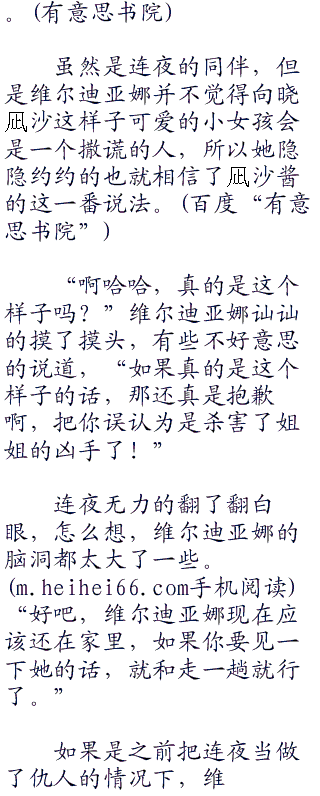 。(有意思书院)
虽然是连夜的同伴，但
是维尔迪亚娜并不觉得向晓
凪沙这样子可爱的小女孩会
是一个撒谎的人，所以她隐
隐约约的也就相信了凪沙酱
的这一番说法。(百度“有意
思书院”)
“啊哈哈，真的是这个
样子吗？”维尔迪亚娜讪讪
的摸了摸头，有些不好意思
的说道，“如果真的是这个
样子的话，那还真是抱歉
啊，把你误认为是杀害了姐
姐的凶手了！”
连夜无力的翻了翻白
眼，怎么想，维尔迪亚娜的
脑洞都太大了一些。
(m.heihei66.com手机阅读)
“好吧，维尔迪亚娜现在应
该还在家里，如果你要见一
下她的话，就和走一趟就行
了。”
如果是之前把连夜当做
了仇人的情况下，维